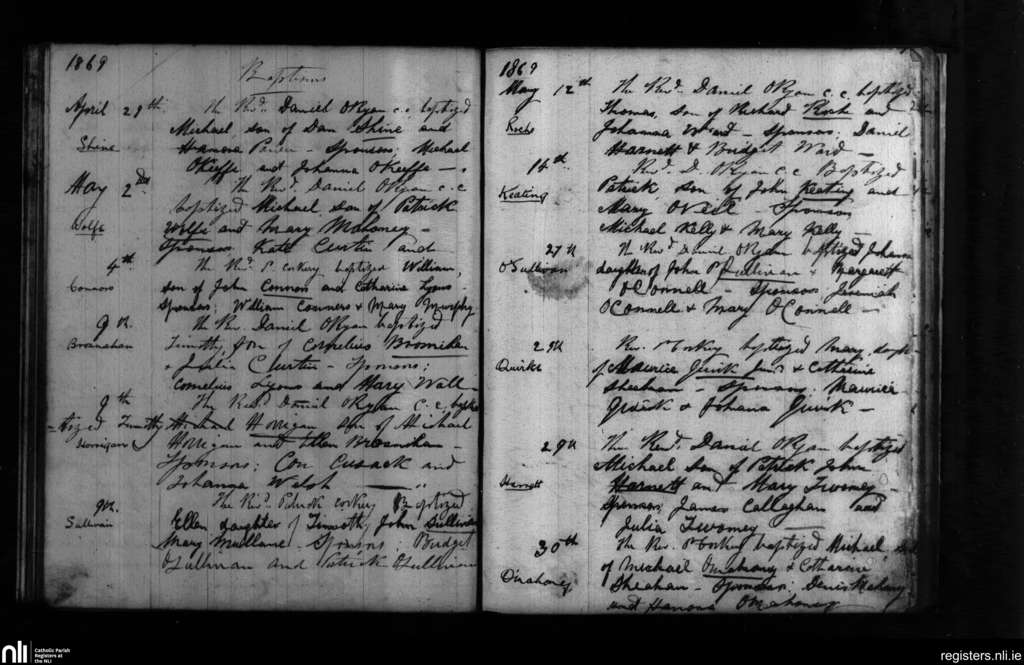 1869
Baptisms
April 29th The Revd. Daniel ORyan c.c. baptized
Michael son of Dan Shine and
Shine Hanora Power - Sponsors; Michael
OKeeffe and Johanna OKeeffe -
May 2nd The Revd. Daniel ORyan c.c
baptized Michael, son of Patrick
Wolfe Wolfe and Mary Mahoney -
Sponsors Kate Curtin and
4th The Revd. P. Corkery baptized William,
Connors son of John Connors and Catharine Lyons
Sponsors; William Connors & Mary Murphy
9th The Rev. Daniel ORyan baptized
Brosnahan Timothy, Son of Cornelius
& Julia Curtin - Sponsors;
Cornelius Lyons and Mary Wall -
9th The Revd. Daniel ORyan c.c. bap
tized Timothy Michael Horrigan Son of Michael
Horrigan Horrigan and Ellen Brosnahan -
Sponsors; Con Cusack and
Johanna Welsh
9th The Revd. Patrick Corkery Baptized
Sullivan Ellen daughter of Timothy John Sullivan
Mary Mullane - Sponsors; Bridget
OSullivan and Patrick OSullivan
1869
May 12th The Revd. Daniel ORyan c.c. baptized
Thomas, son of Richard Roch and
Roche Johanna Ward - Sponsors; Daniel
Harnett & Bridget Ward -
14th Revd. D. ORyan c.c Baptized
Keating Patrick son of John Keating and
Mary ONeill - Sponsors
Michael Kelly & Mary Kelly -
27th The Revd Daniel ORyan baptized Johanna
O'Sullivan daughter of John P Sullivan & Margarett
OConnell - Sponsors Jeremiah
OConnell & Mary OConnell -
29th Rev. P Corkery baptized Mary, daugh
Quirke of Maurice Quirk & Catharine
Sheehan - Sponsors. Maurice
Quirk & Johana Quirk -
29th The Revd. Daniel ORyan baptized
Michael Son of Patrick John
Harnett Harnett and Mary Twomey -
Sponsors; James Callaghan and
Julia Twomey
30th The Rev. P Corkery baptized Michael,
of Michael Omahony & Catharine
O'mahoney Sheahan - Sponsors; Denis Mahony
and Hanora OMahoney
nli Catholic Parish
Registers at
the NLI
registers.nli.ie